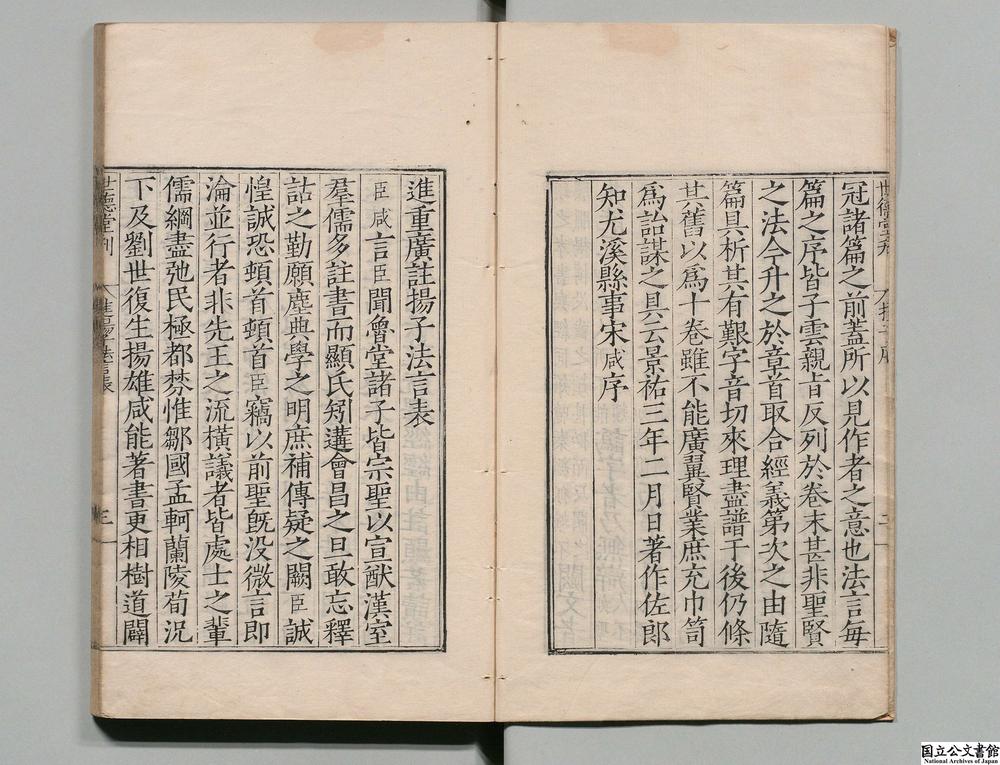 冠諸篇之前蓋所以見作者之意也法言每
篇之序皆子雲親旨反列於卷末甚非聖賢
之法今升之於章首取合經義第次之由隨
篇具析其有艱字音切來理盡譜于後仍條
其舊以爲十卷雖不能廣翼賢業庶充巾笥
爲詒謀之具云景祐三年二月日著作佐郎
知尤溪縣事宋咸序
進重廣註揚子法言表
臣咸言臣聞魯堂諸子皆宗聖以宣猷漢室
羣儒多註書而顯氏矧遘會昌之旦敢忘釋
詁之勤願塵典學之明庶補傳疑之闕臣誠
惶誠恐頓首頓首臣竊以前聖既没微言即
淪並行者非先王之流橫議者皆處士之輩
儒綱盡弛民極都棼惟鄒國孟軻蘭陵荀況
下及劉世復生揚雄咸能著書更相樹道闢
世德堂刊
進揚子法言表
三
国立公文書館
National Archives of Japan